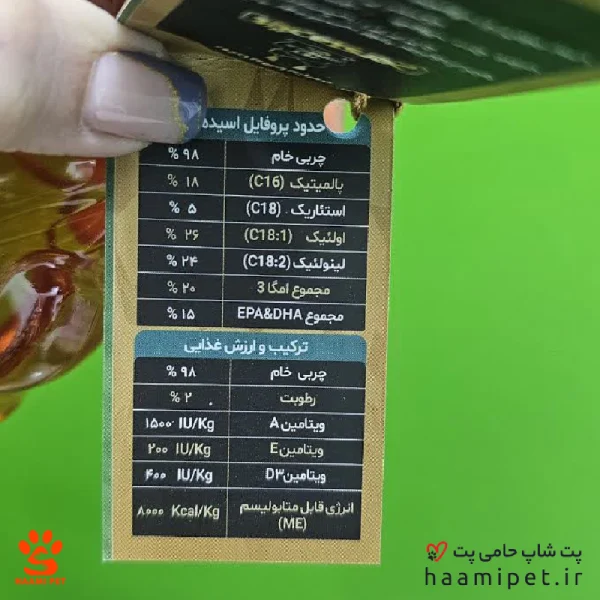 حدود پروفایل اسیده
چربی خام ۹۸ %
پالمیتیک (C16) ۱۸ %
استئاریک (C18) ۵ %
اولئیک (C18:1) ۲۶ %
لینولئیک (C18:2) ۲۴ %
مجموع امگا 3 ۲۰ %
مجموع EPA&DHA ۱۵ %
ترکیب و ارزش غذایی
چربی خام ۹۸ %
رطوبت ۲ %
ویتامین A ۱۵۰۰ IU/Kg
ویتامین E ۲۰۰ IU/Kg
ویتامین D۳ ۴۰۰ IU/Kg
انرژی قابل متابولیسم (ME) ۸۰۰۰ Kcal/Kg
پت شاپ حامی پت
haamipet.ir
HAAMI PET